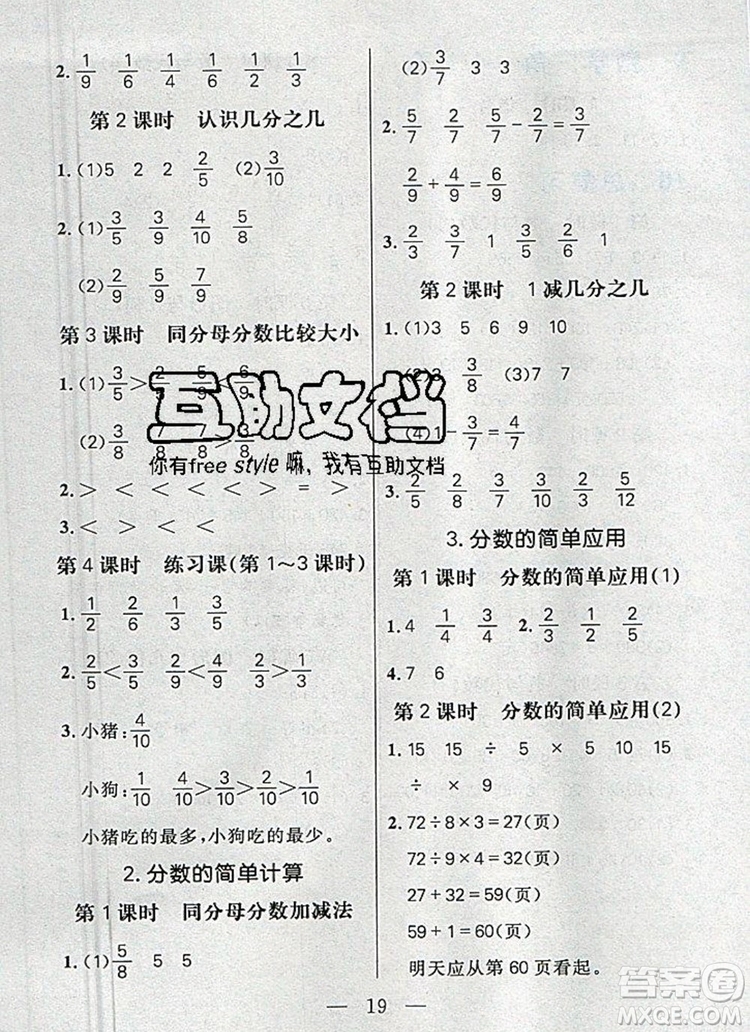 2. 1/9 1/6 1/4 1/6 1/2 1/3
第2课时 认识几分之几
1. (1)5 2 2 2/5 (2)3/4
2. (1)3/5 3/9 4/10 5/8
(2)2/9 5/9 7/9
第3课时 同分母分数比较大小
1. (1)3/5> 5/9<6/9
(2)3/8 7/8 7/8>3/8
2. > < < < < < = >
3. < > < <
第4课时 练习课(第1~3课时)
1. 1/2 2/6 1/3 3/5
2. 2/5<3/5 2/9<4/9
3. 小猪:4/10
小狗:1/10 4/10>3/10>2/10>1/10
小猪吃的最多,小狗吃的最少。
2.分数的简单计算
第1课时 同分母分数加减法
1. (1)5/8 5 5
(2)3/7 3 3
2. 5/7 2/7 5/7-2/7=3/7
2/9+4/9=6/9
3. 2/3 3/7 1 3/5 2/6 1
第2课时 1减几分之几
1. (1)3 5 6 9 10
3/8 (3)7 7
(4)1-3/7=4/7
3. 2/5 2/8 3/10 5/8 2/5 5/12
3.分数的简单应用
第1课时 分数的简单应用(1)
1. 4 1/4 3/4 2. 2/3 1/2 2/5
4. 7 6
第2课时 分数的简单应用(2)
1. 15 15 ÷ 5 × 5 10
÷ × 9
2. 72÷8×3=27(页)
72÷9×4=32(页)
27+32=59(页)
59+1=60(页)
明天应从第60页看起。
互助文档
你有free style嘛,我有互助文档
19
答案圈
MXQE.COM